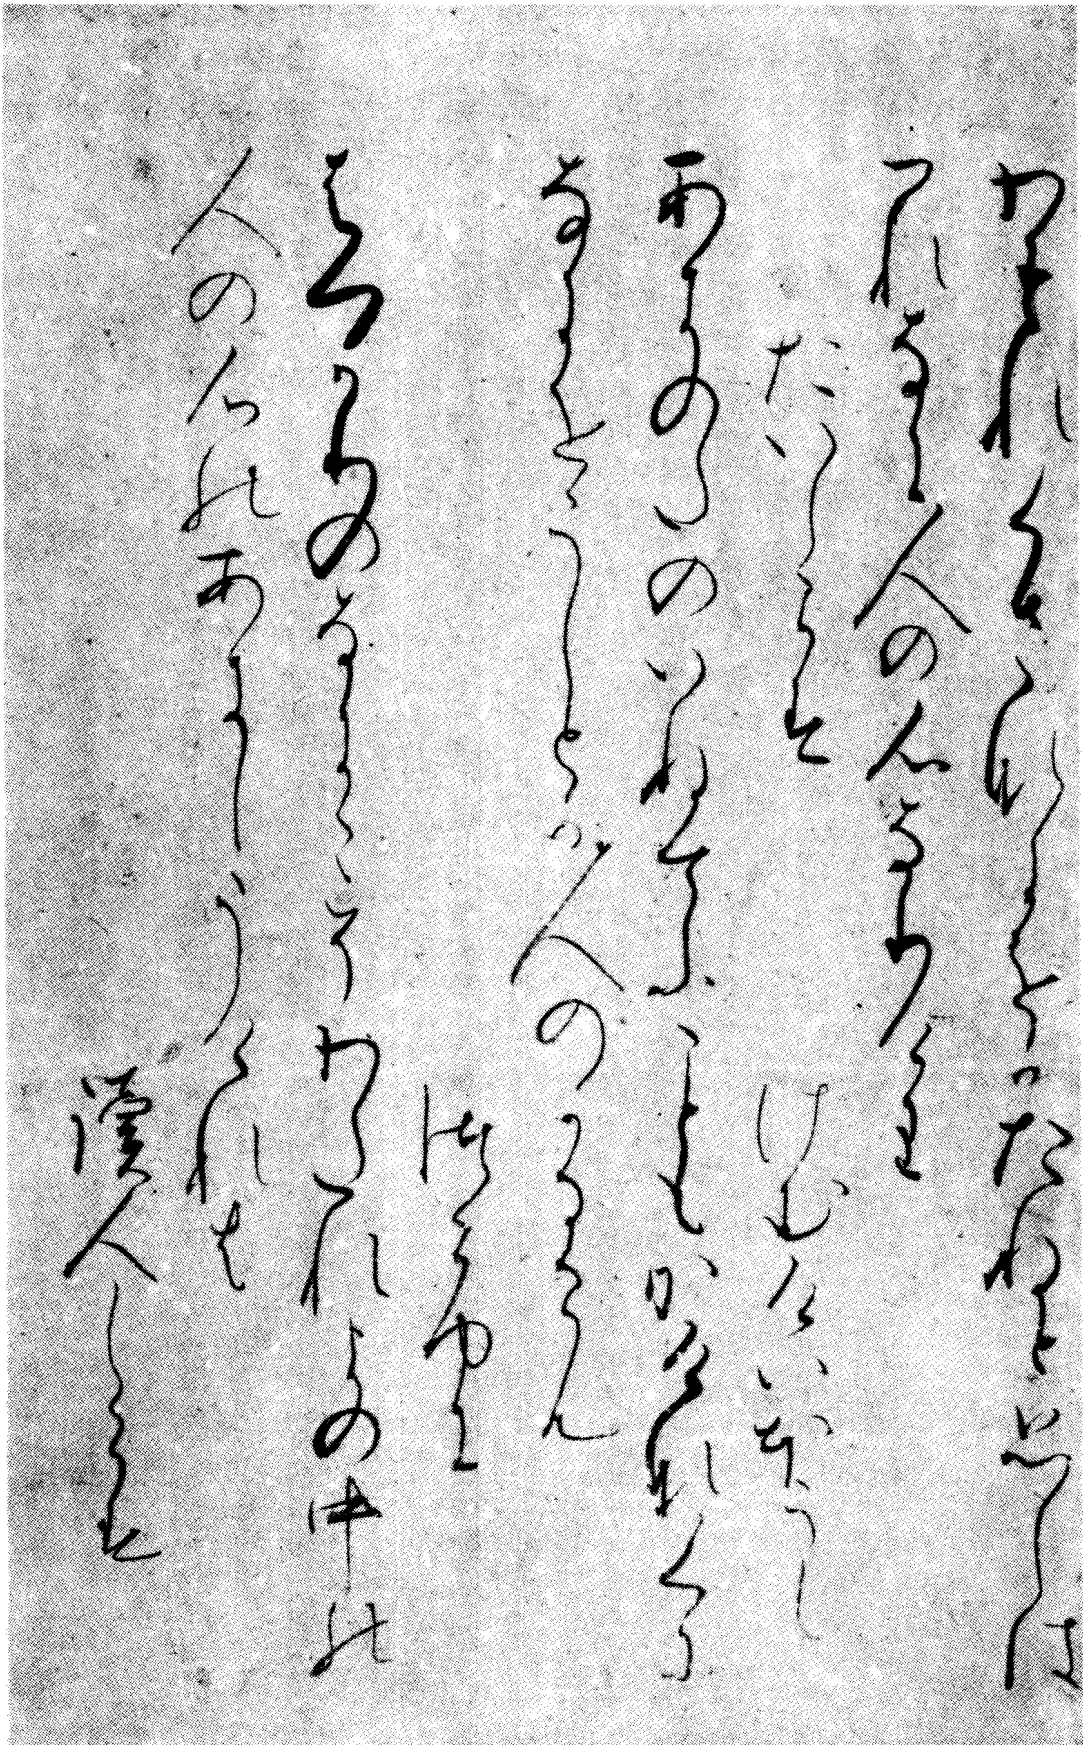 わすれくさなにをかたねと思しは
つれなき人の心なりけり
たいしらす　けむけいほうし
あきのたのいねてふこともかけなくに
なにをうしとか人のかるらん
つらゆき
はつかりのなきこそわたれよの中の
人の心のあきしうけれは
讀人しらす